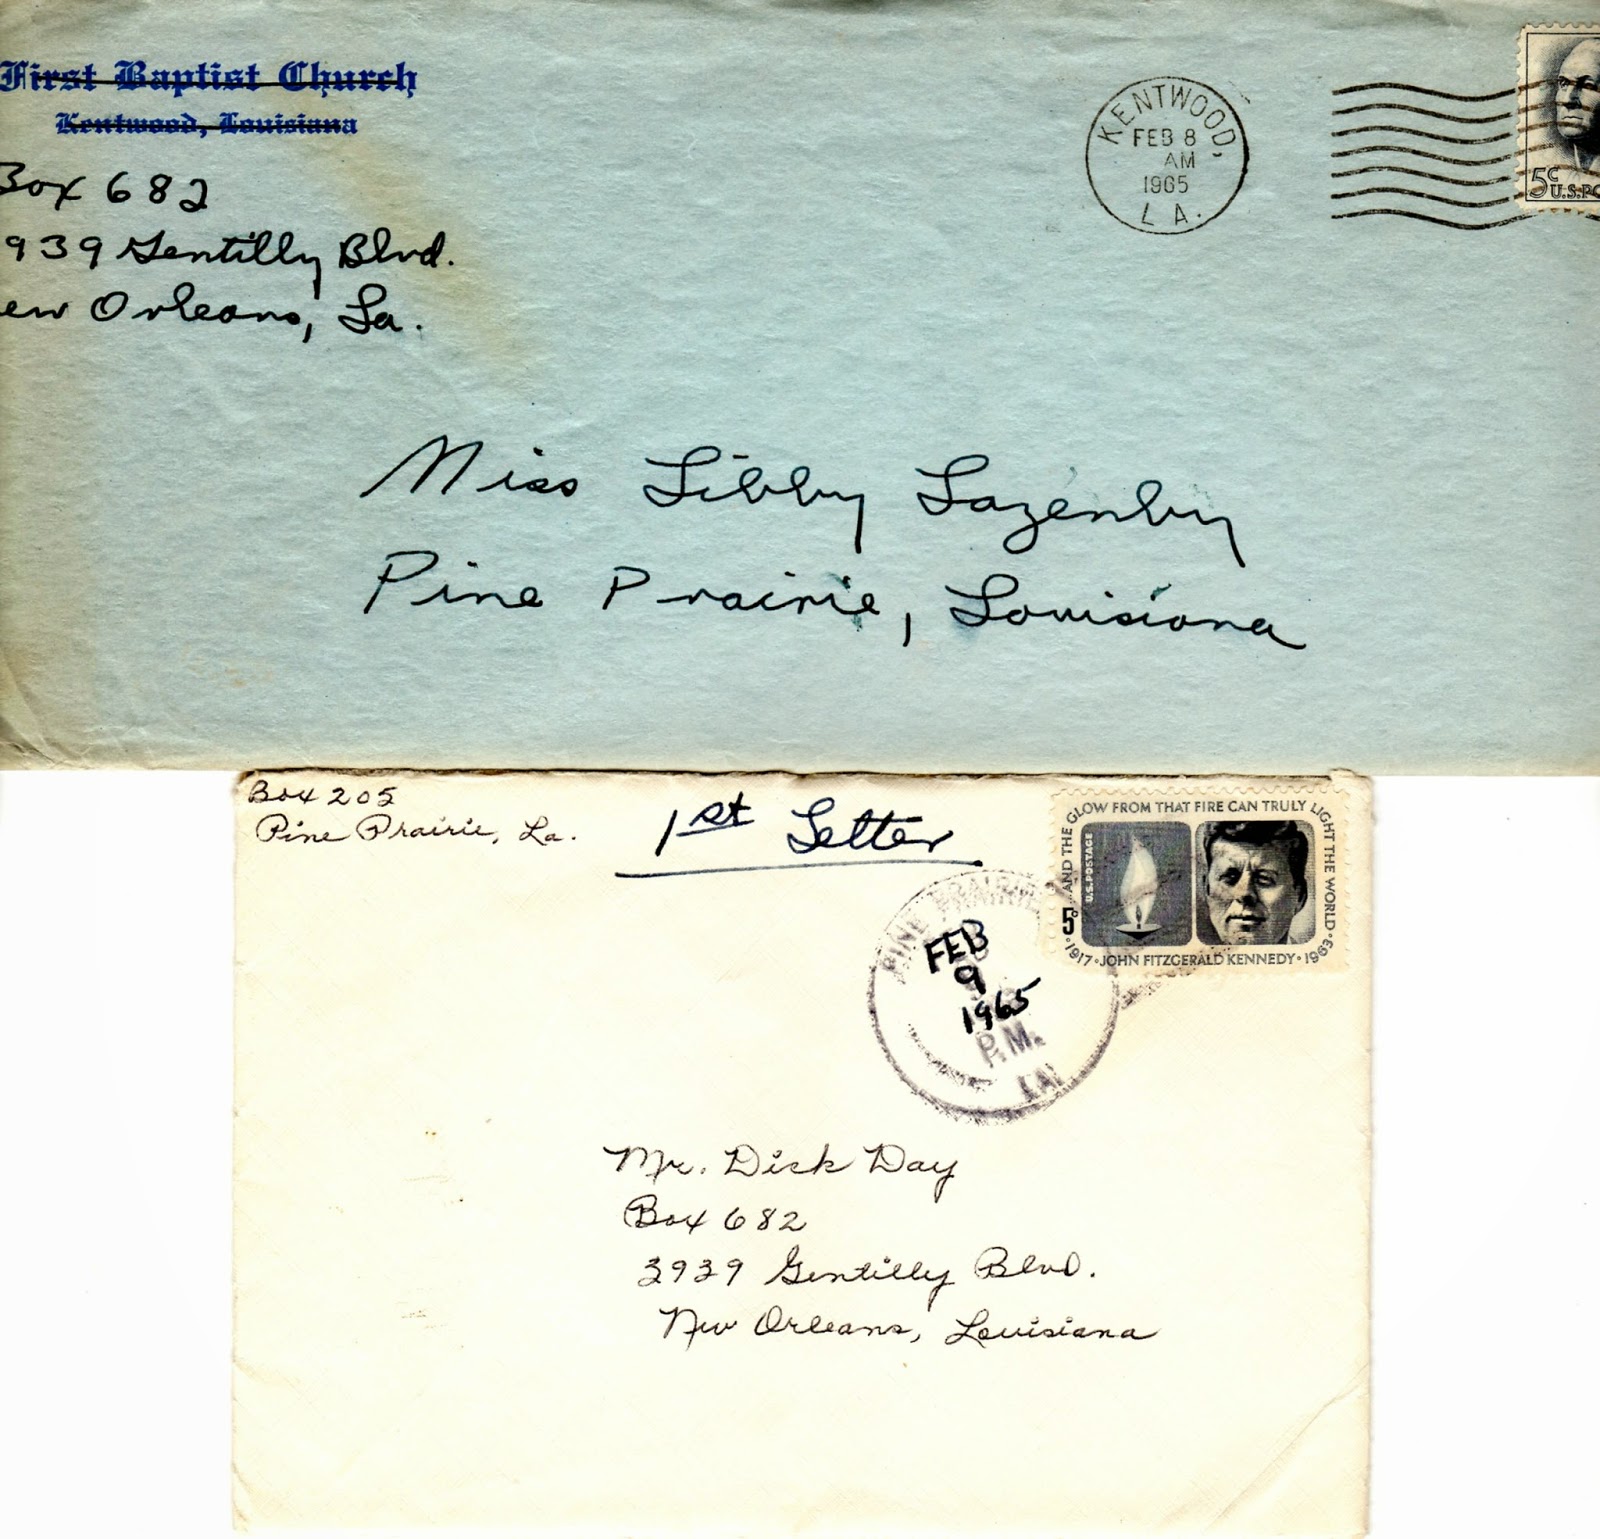 First Baptist Church
Kentwood, Louisiana
Box 682
939 Gentilly Blvd.
ew Orleans, La.
KENTWOOD,
FEB 8
AM
1965
LA.
5c
U.S.PO
Miss Libby Lazenby
Pine Prairie, Louisiana
Box 205
Pine Prairie, La.
1st Letter
AND THE GLOW FROM THAT FIRE CAN TRULY LIGHT THE WORLD
U.S. POSTAGE
5c
1917 • JOHN FITZGERALD KENNEDY • 1963
PINE PRAIRIE
FEB
9
1965
P.M.
LA
Mr. Dick Day
Box 682
3939 Gentilly Blvd.
New Orleans, Louisiana